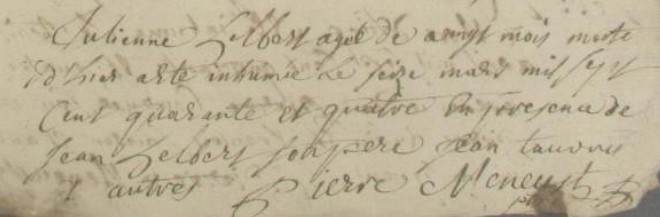 Julienne Gelbert agée de vingt mois morte
d'hier a ete inhumée le seize mars mil sept
Cent quarante et quatre En presence de
Jean Gelbert son pere Jean
& autres Pierre